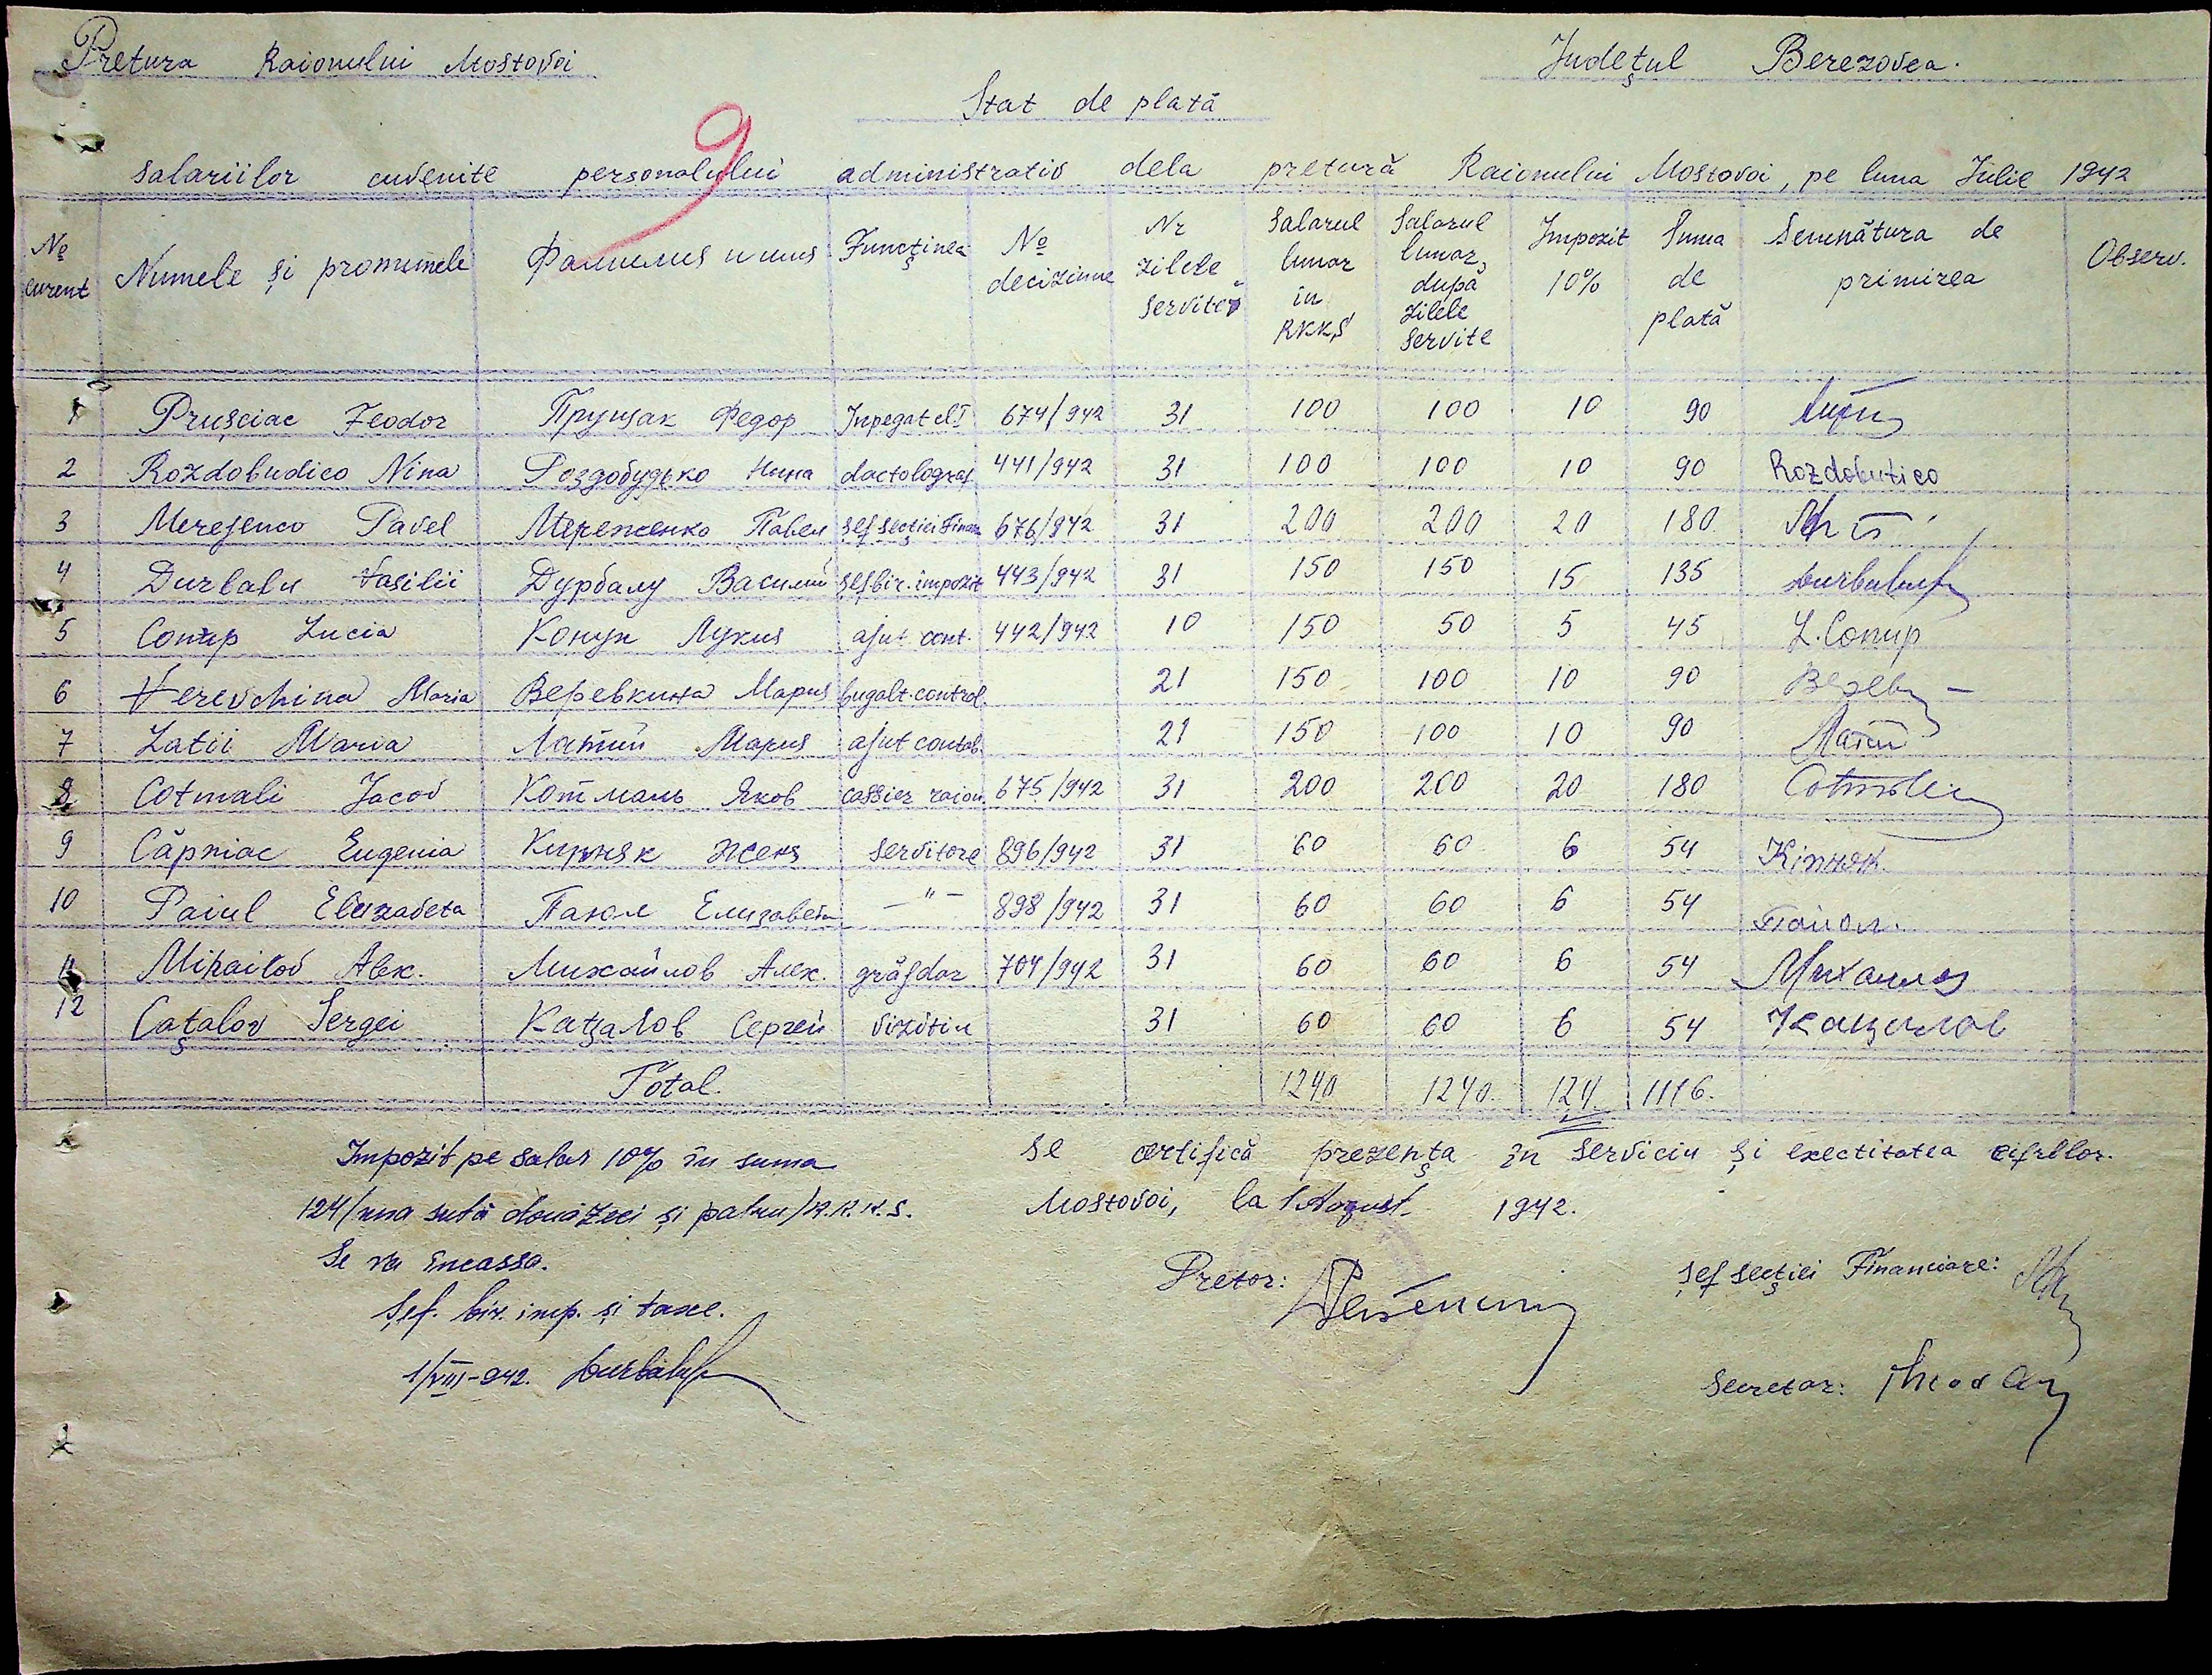 Pretura Raionului Mostovoi Județul Berezovca.
Stat de plată
9
salariilor cuvenite personalului administrativ dela pretură Raionului Mostovoi, pe luna Iulie 1942
№ curent Numele și pronumele Фамилия и имя Funcținea № decizinne Nr zilele servite Salarul lunar in RKKS Salarul lunar după zilele servite Impozit 10% Suma de plată Semnătura de primirea Observ.
1 Prușciac Feodor Прущак Федор Inpegat cl I 674/942 31 100 100 10 90
2 Rozdobudico Nina Роздобудько Нина dactolograf 441/942 31 100 100 10 90 Rozdobutico
3 Merejenco Pavel Мереженко Павел șef secției Finan 676/942 31 200 200 20 180
4 Durbalu Vasilii Дурбалу Василий șef bir. impozit 443/942 31 150 150 15 135 Durbalu
5 Conup Lucia Конуп Лукия ajut cont. 442/942 10 150 50 5 45 L. Conup
6 Verevchina Maria Веревкина Мария bugalt. control. 21 150 100 10 90
7 Latii Maria Латий Мария ajut contab. 21 150 100 10 90 Латий
8 Cotmali Jacov Котмаль Яков cassier raion. 675/942 31 200 200 20 180 Cotmali
9 Cărniac Eugenia Кирняк Женя servitore 896/942 31 60 60 6 54
10 Paiul Elizaveta Паюл Елизавета —"— 898/942 31 60 60 6 54
11 Mihailov Alex. Михайлов Алек. grăjdar 704/942 31 60 60 6 54 Михаилов
12 Cațalov Sergei Кацалов Сергей vizitiu 31 60 60 6 54 Кацалов
Total. 1240 1240. 124 1116.
Impozit pe salar 10% în suma
124/una sută douăzeci și patru/R.K.K.S.
Se va încassa.
Șef. bir. imp. și taxe.
1/VIII-942. Durbalu
se certifică prezența în serviciu și exectitatea cifrelor.
Mostovoi, la 1 August 1942.
Pretor:
Șef secției Financiare:
Secretar: